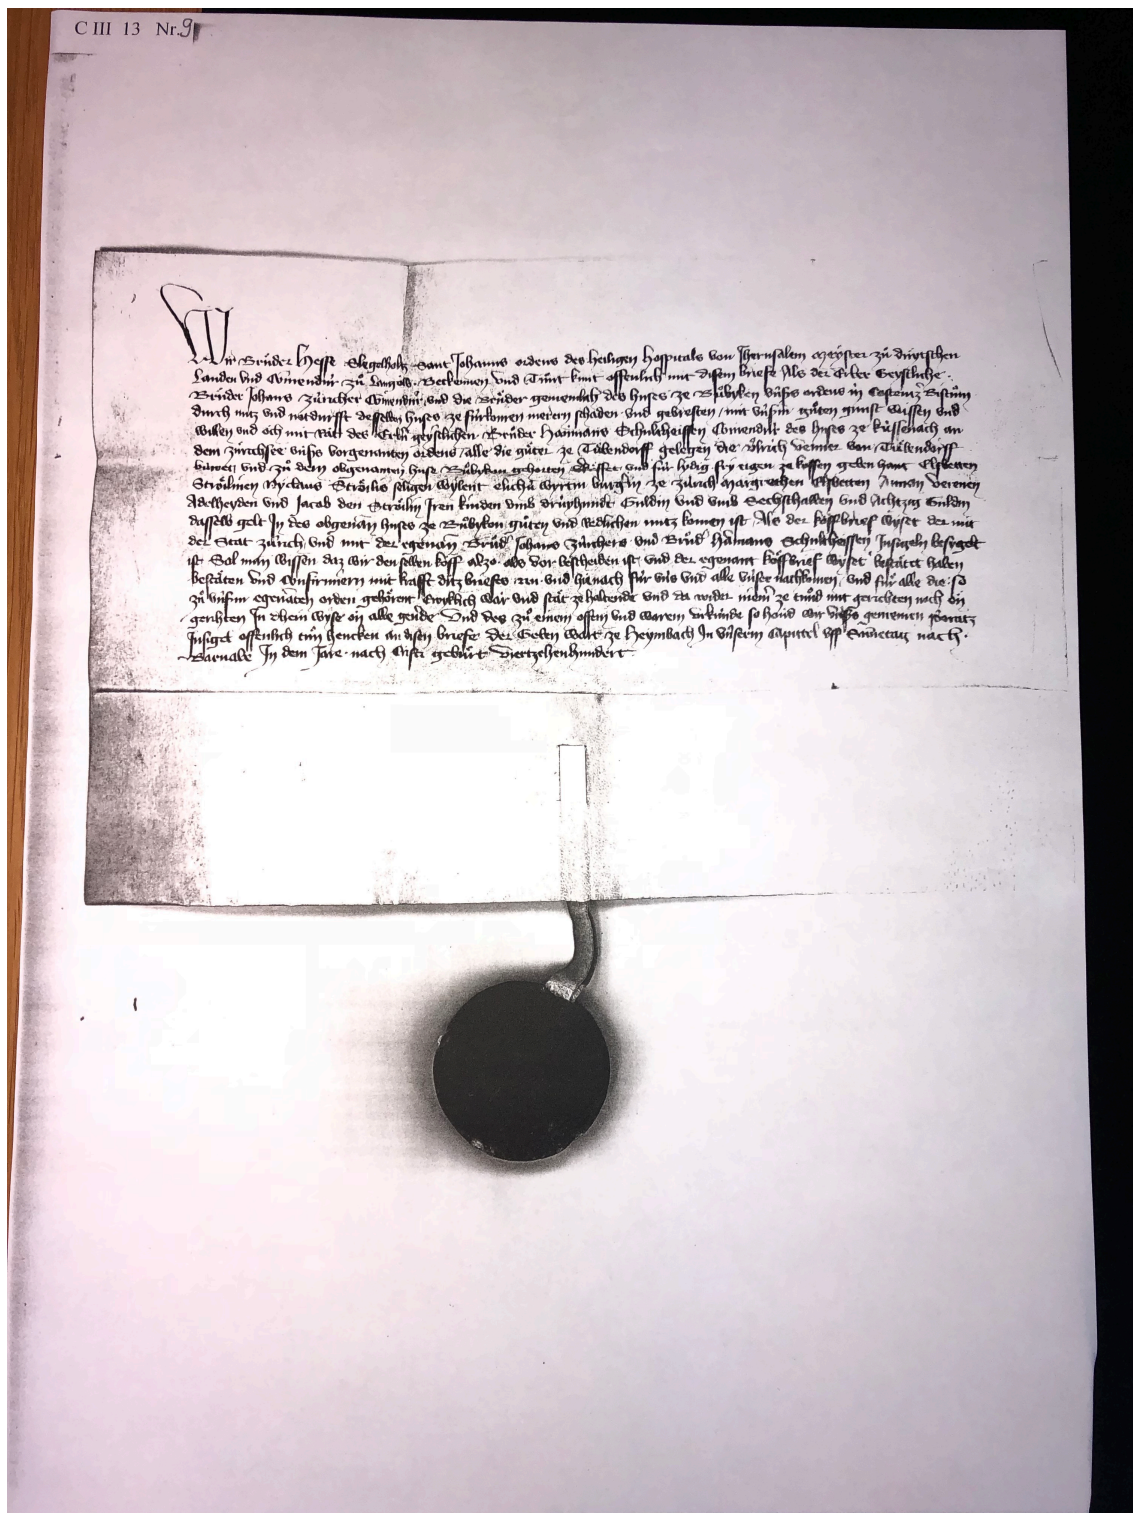 C III 13 Nr. 9
Wir Bruͦder Hesse Slegelholtz Sant Johanns ordens des heiligen hospitals von Jherusalem meyster zuͦ duͤtschen
Landen vnd Comenduͤr zuͦ Beckemen vnd Tuͦnt kunt offenlich mit disem briefe Als der Erber Geystliche
Bruͦder Johans zuͤricher Comenduͤr vnd die Bruͤder gemeinlich des huses ze Buͦbykon vnsers ordens in Costentzer Bistuͦm
durch nutz vnd notdurfft desselben huses ze fuͤrkomen merern schaden vnd gebresten / mit vnserm guͦten gunst wissen vnd
willen vnd och mit Rat des Erbern geystlichen Bruͦder Hammans Schultheissen Comenduͤr des huses ze kuͤssenach an
dem zuͤrichsee vnsers vorgenanten ordens / alle die guͤter ze Tuͤbendorff gelegen die Uͦlrich von Tuͤbendorff
buwet vnd zuͦ dem obgenanten huse Buͦbykon gehorten vnd fuͤr lydig fry eigen ze koffen geben hant Elsbetten
Stroͤlinen Nyclaus Stroͤlis seligen wylent elichen wyrtin burgerin ze zuͤrich margrethen Elsbetten Annan Verenen
Adelheyden vnd Jacob den Stroͤlin Iren kinden vmb druͤhundert Guldin vnd vmb Sechsthalben vnd Achtzig Guldin
dasselb gelt In des obgenanten huses ze Buͦbykon guͦten vnd Redlichen nutz komen ist / Als der koͧffbrief wyset der mit
der Stat zuͤrich vnd mit der egenanten Bruͦder Johans zuͤrichers vnd Bruͦder Hammans Schultheissen Insigeln besigelt
ist Sol man wissen daz wir den selben koͧff also als vor bescheiden ist vnd der egenant koͧffbrief wyset bestaͤtet haben
bestaͤten vnd Confirmieren mit krafft ditz briefes nu vnd hienach fuͤr vns vnd alle vnser nachkomen vnd fuͤr alle die so
zuͦ vnserm egenanten orden gehoͤrent Ewiklich war vnd staͤt ze haltende vnd da wider niemer ze tuͦnd mit gerichten noch on
gerichten In dhein wyse on alle geuerde Vnd des zuͦ einem offem vnd warem vrkuͤnde so hand wir vnsers gemeinen
Insigel offenlich tuͦn hencken an disen briefe Der Geben wart ze Heymbach In vnserm Cappittel vff nach
Barnabe In dem Jare nach Cristi gebuͤrt Viertzehenhundert